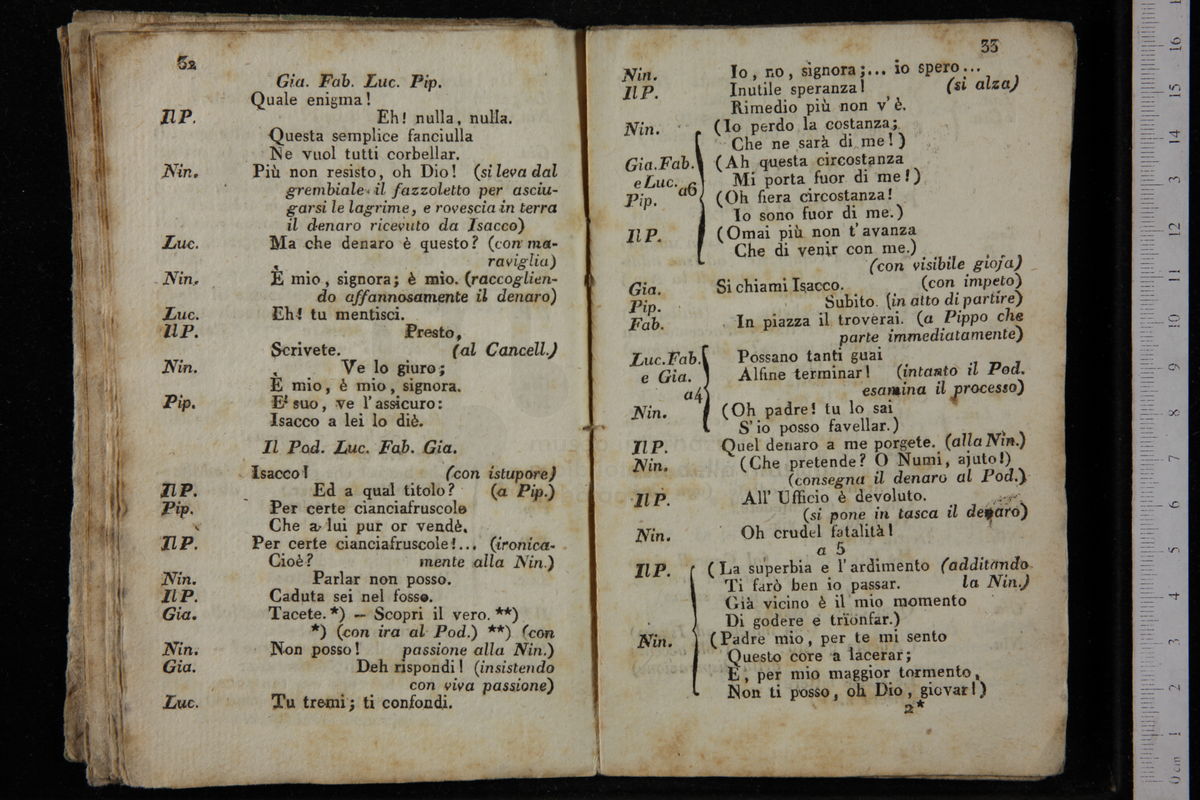 32
Gia. Fab. Luc. Pip.
Quale enigma!
Il P. Eh! nulla, nulla.
Questa semplice fanciulla
Ne vuol tutti corbellar.
Nin. Più non resisto, oh Dio! (si leva dal
grembiale il fazzoletto per asciu-
garsi le lagrime, e rovescia in terra
il denaro ricevuto da Isacco)
Luc. Ma che denaro è questo? (con ma-
raviglia)
Nin. È mio, signora; è mio. (raccoglien-
do affannosamente il denaro)
Luc. Eh! tu mentisci.
Il P. Presto,
Scrivete. (al Cancell.)
Nin. Ve lo giuro;
È mio, è mio, signora.
Pip. E' suo, ve l'assicuro:
Isacco a lei lo diè.
Il Pod. Luc. Fab. Gia.
Isacco! (con istupore)
Il P. Ed a qual titolo? (a Pip.)
Pip. Per certe cianciafruscole
Che a lui pur or vendè.
Il P. Per certe cianciafruscole!... (ironica-
Cioè? mente alla Nin.)
Nin. Parlar non posso.
Il P. Caduta sei nel fosso.
Gia. Tacete. *) — Scopri il vero. **)
*) (con ira al Pod.) **) (con
Nin. Non posso! passione alla Nin.)
Gia. Deh rispondi! (insistendo
con viva passione)
Luc. Tu tremi; ti confondi.
33
Nin. Io, no, signora;... io spero...
Il P. Inutile speranza! (si alza)
Rimedio più non v'è.
Nin. (Io perdo la costanza;
Che ne sarà di me!)
Gia. Fab. (Ah questa circostanza
e Luc. a6 Mi porta fuor di me!)
Pip. (Oh fiera circostanza!
Io sono fuor di me.)
Il P. (Omai più non t'avanza
Che di venir con me.)
(con visibile gioja)
Gia. Si chiami Isacco. (con impeto)
Pip. Subito. (in atto di partire)
Fab. In piazza il troverai. (a Pippo che
parte immediatamente)
Luc. Fab. Possano tanti guai
e Gia. Alfine terminar! (intanto il Pod.
a4 esamina il processo)
Nin. (Oh padre! tu lo sai
S'io posso favellar.)
Il P. Quel denaro a me porgete. (alla Nin.)
Nin. (Che pretende? O Numi, ajuto!)
(consegna il denaro al Pod.)
Il P. All' Ufficio è devoluto.
(si pone in tasca il denaro)
Nin. Oh crudel fatalità!
a 5
Il P. (La superbia e l'ardimento (additando
Ti farò ben io passar. la Nin.)
Già vicino è il mio momento
Di godere e trionfar.)
Nin. (Padre mio, per te mi sento
Questo core a lacerar;
E, per mio maggior tormento,
Non ti posso, oh Dio, giovar!)
2*
0 cm 1 2 3 4 5 6 7 8 9 10 11 12 13 14 15 16